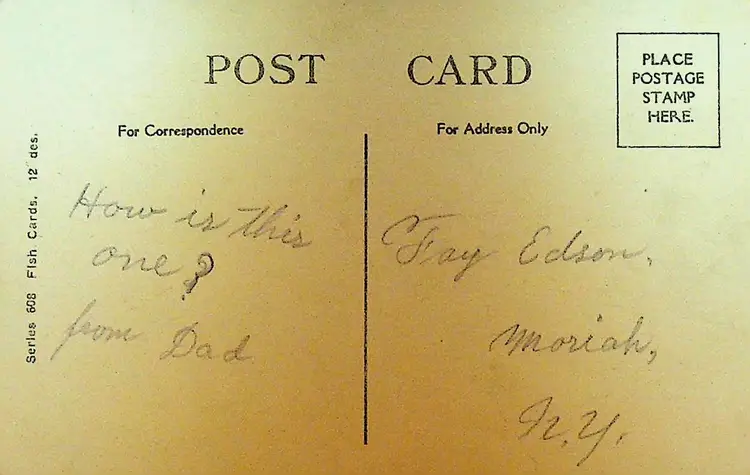 POST CARD
PLACE
POSTAGE
STAMP
HERE.
For Correspondence
For Address Only
Series 608 Fish Cards. 12 des.
How is this
one?
from Dad
Fay Edson,
Moriah,
N.Y.